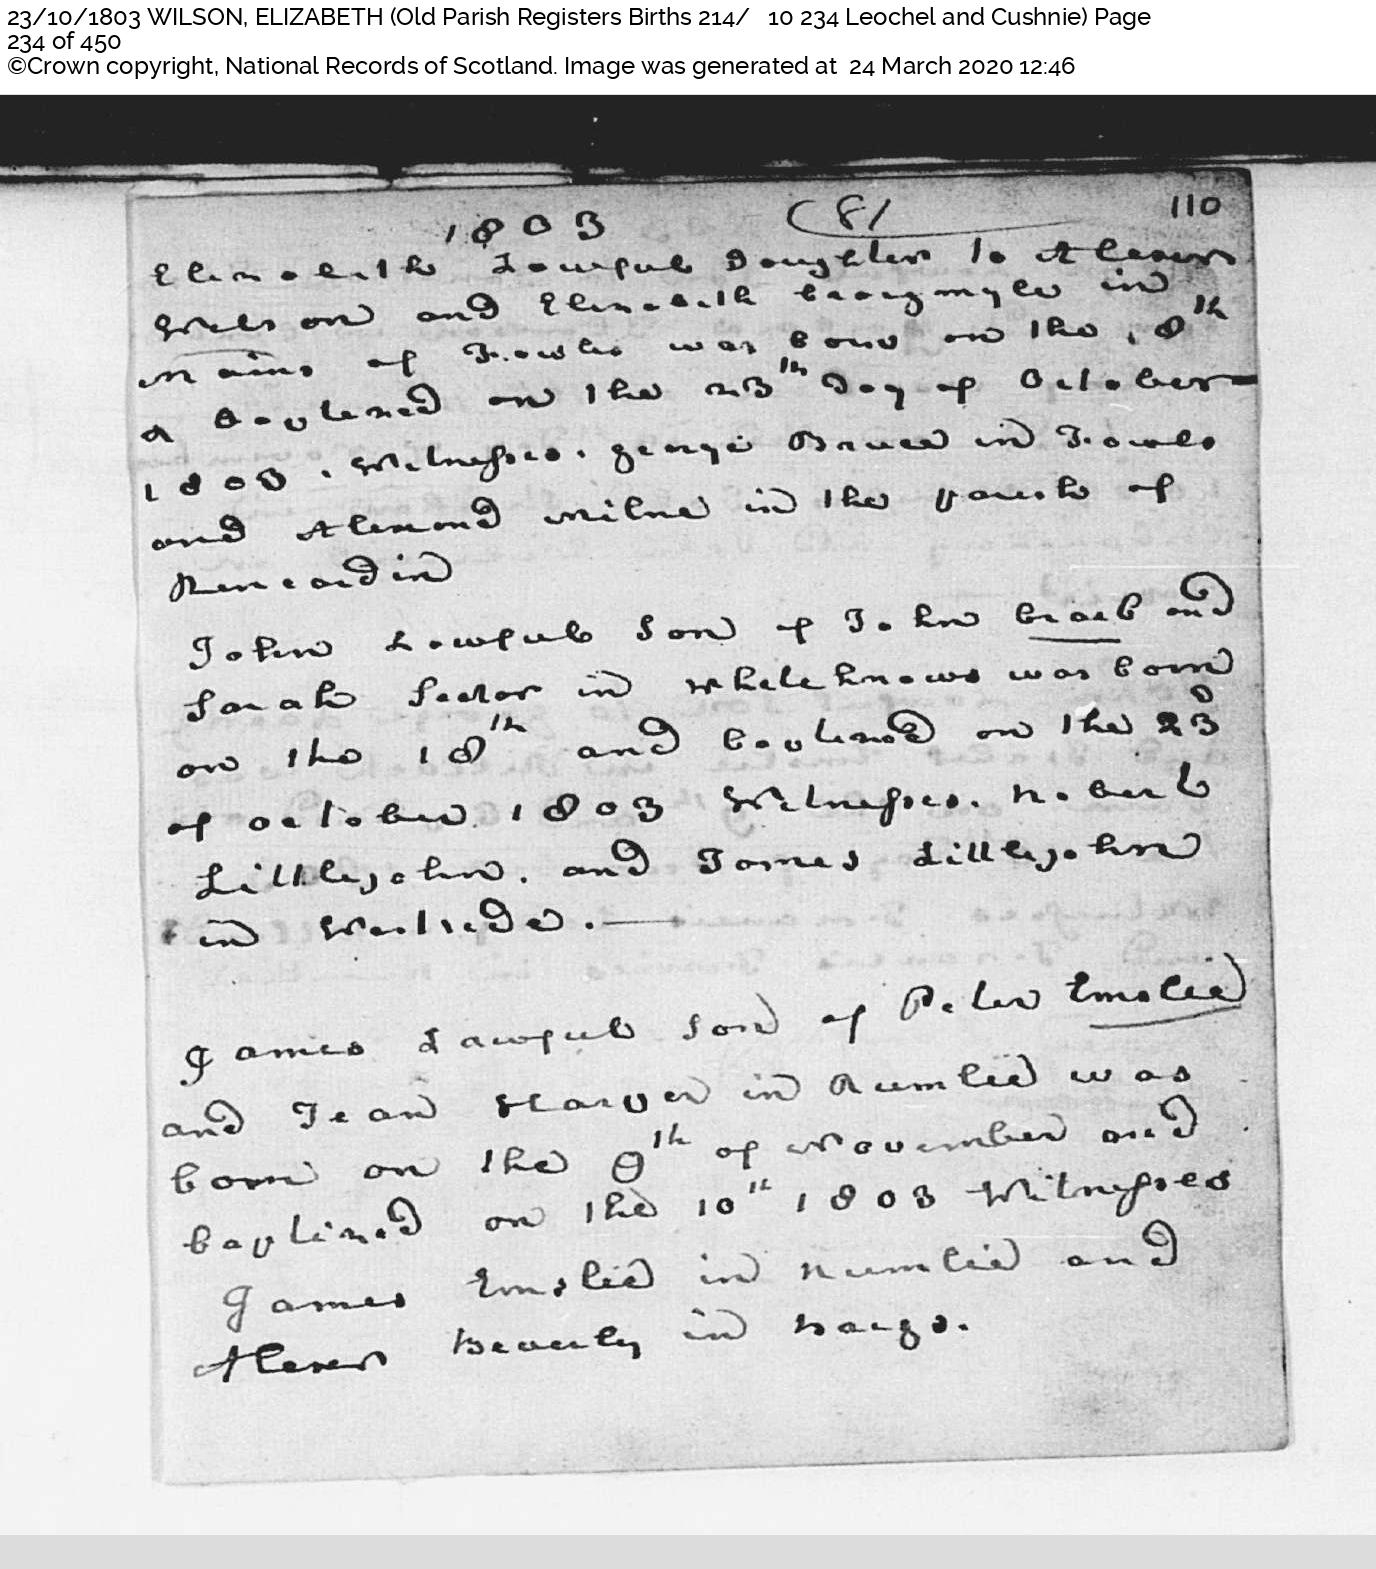 23/10/1803 WILSON, ELIZABETH (Old Parish Registers Births 214/ 10 234 Leochel and Cushnie) Page
234 of 450
©Crown copyright, National Records of Scotland. Image was generated at 24 March 2020 12:46
1803 (81 110
Elizabeth Lawful Daughter to Alexr
Wilson and Elizabeth in
mains of Fowlis was born on the 18th
& Baptized on the 23th Day of October
1803. Witnesses. george Bruce in Fowls
and Alexand Milne in the parish of
Kincardin
John Lawful Son of John and
Sarah Sector in whiteknows was born
on the 18th and baptized on the 23d
of october 1803 Witnesses. Robert
Littlejohn. and James Littlejohn
in Westside.
James Lawful Son of Peter Emslie
and Jean Harper in Rumlie was
born on the 9th of November and
baptized on the 10th 1803 Witnesses
James Emslie in Rumlie and
Alexer Beverly in